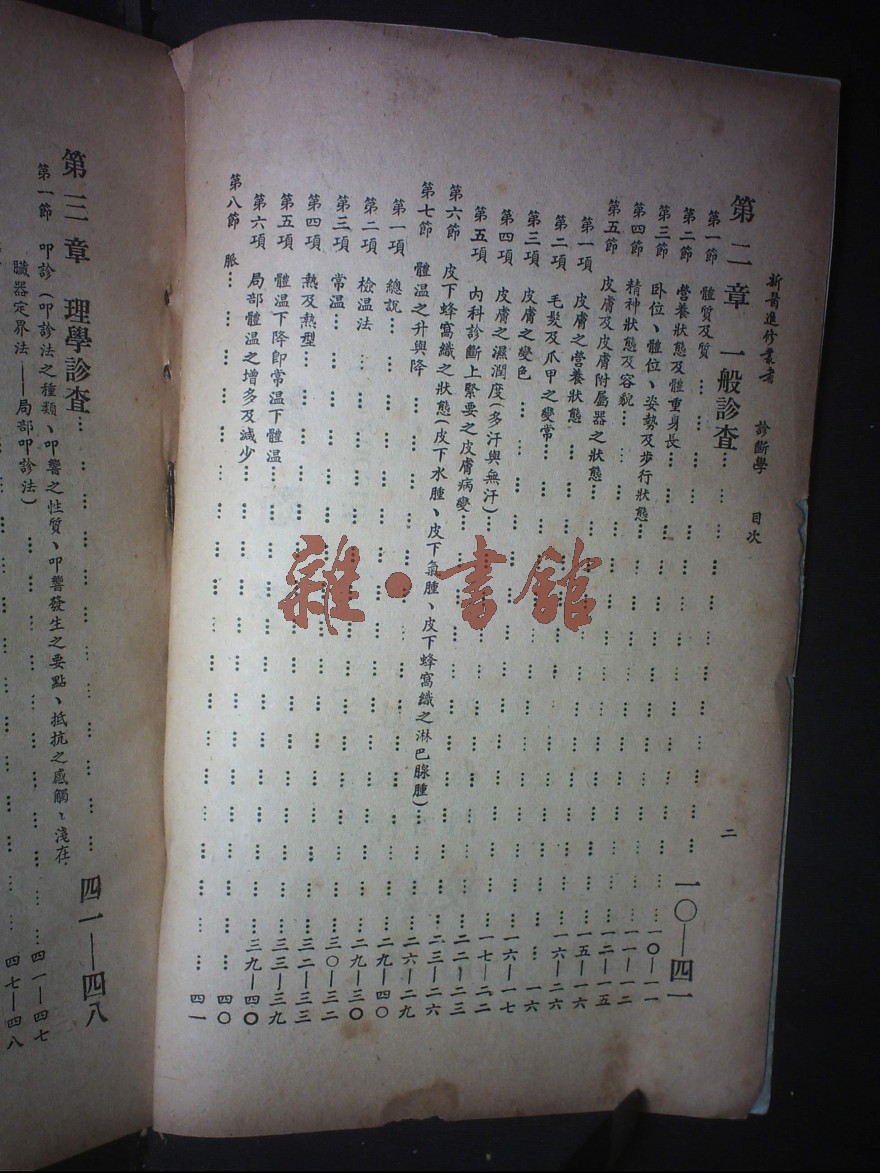 新醫進修叢書 診斷學 目次 二
第二章 一般診查……一〇—四一
第一節 體質及質……一〇—一一
第二節 營養狀態及體重身長……一一—一二
第三節 臥位、體位、姿勢及步行狀態……一二—一五
第四節 精神狀態及容貌……一五—一六
第五節 皮膚及皮膚附屬器之狀態……一六—二六
第一項 皮膚之營養狀態……一六
第二項 毛髮及爪甲之變常……一六—一七
第三項 皮膚之變色……一七—二二
第四項 皮膚之濕潤度(多汗與無汗)……二二—二三
第五項 內科診斷上緊要之皮膚病變……二三—二六
第六節 皮下蜂窩織之狀態(皮下水腫、皮下氣腫、皮下蜂窩織之淋巴腺腫)……二六—二九
第七節 體溫之升與降……二九—四〇
第一項 總說……二九—三〇
第二項 檢溫法……三〇—三二
第三項 常溫……三二—三三
第四項 熱及熱型……三三—三九
第五項 體溫下降即常溫下體溫……三九—四〇
第六項 局部體溫之增多及減少……四〇
第八節 脈……四一
第三章 理學診查……四一—四八
第一節 叩診(叩診法之種類、叩響之性質、叩響發生之要點、抵抗之感觸、淺在
臟器定界法——局部叩診法)……四一—四七
四七—四八
雜·書館